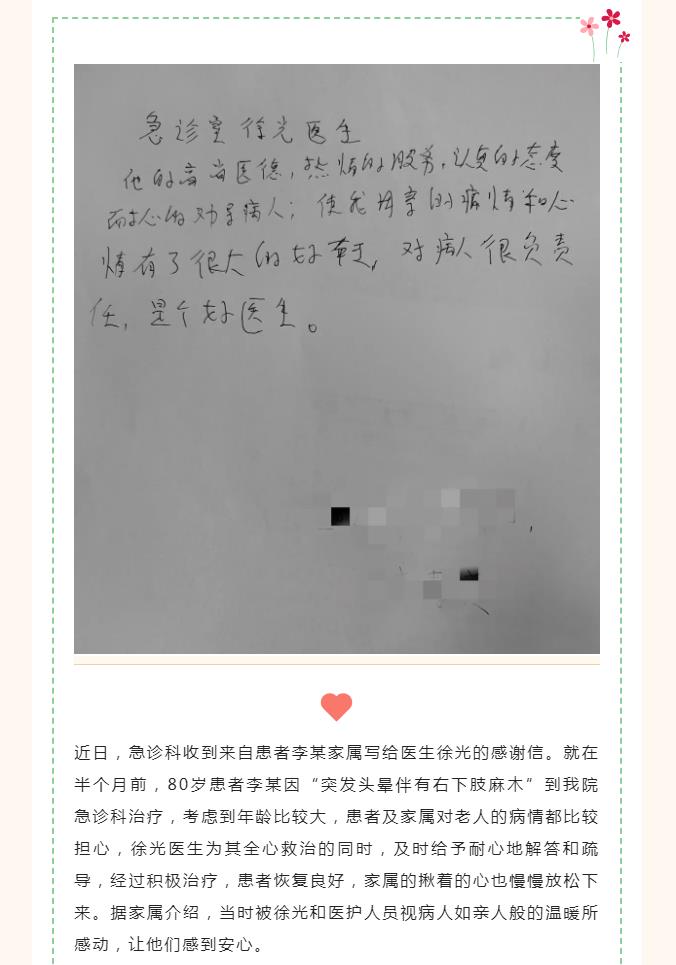 急诊室徐光医生
他的高尚医德，热情的服务，认真的态度
耐心的劝导病人；使我母亲的病情和心
情有了很大的好转，对病人很负责
任，是个好医生。
近日，急诊科收到来自患者李某家属写给医生徐光的感谢信。就在
半个月前，80岁患者李某因“突发头晕伴有右下肢麻木”到我院
急诊科治疗，考虑到年龄比较大，患者及家属对老人的病情都比较
担心，徐光医生为其全心救治的同时，及时给予耐心地解答和疏
导，经过积极治疗，患者恢复良好，家属的揪着的心也慢慢放松下
来。据家属介绍，当时被徐光和医护人员视病人如亲人般的温暖所
感动，让他们感到安心。